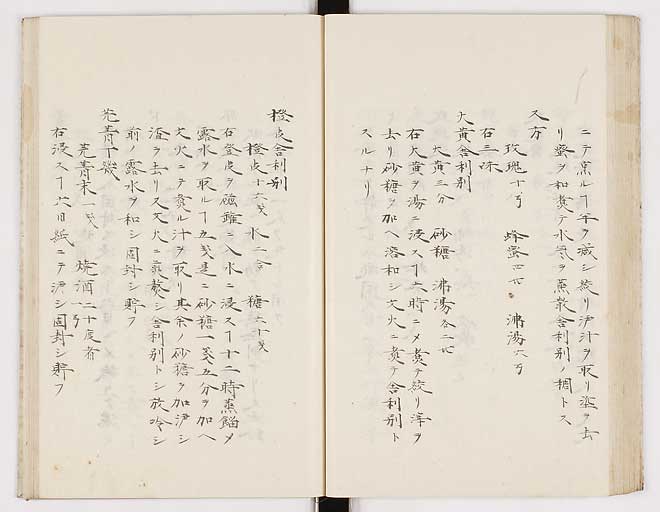 ニテ煎ル丁半ヲ減シ絞リ沪汁ヲ取リ滓ヲ去
リ蜜ヲ和煮テ水分ヲ蒸散舎利別ノ稠トス
又方
玫瑰十 蜂蜜 沸湯六
右三味
大黄舎利別
大黄三分 砂糖 沸湯各二
右大黄ヲ湯ニ浸ス丁六時ニメ煮テ絞リ滓ヲ
去リ砂糖ヲ加ヘ溶和シ文火ニ煮テ舎利別ト
スルナリ
橙皮舎利別
橙皮十六戔 水二合 糖六十戔
右橙皮ヲ硝鑵ニ入水ニ浸ス丁十二時蒸餾メ
露水ヲ取ル丁五戔是ニ砂糖一戔五分ヲ加ヘ
文火ニテ煮ル汁ヲ取リ其余ノ砂糖ヲ加沪シ
滓ヲ去リ又文火ニ煎熬シ舎利別トシ放冷シ
前ノ露水ヲ和シ固封シ貯フ
芫青丁幾
芫青末一戔 焼酒二十度者
右浸ス丁六日紙ニテ沪シ固封シ貯フ